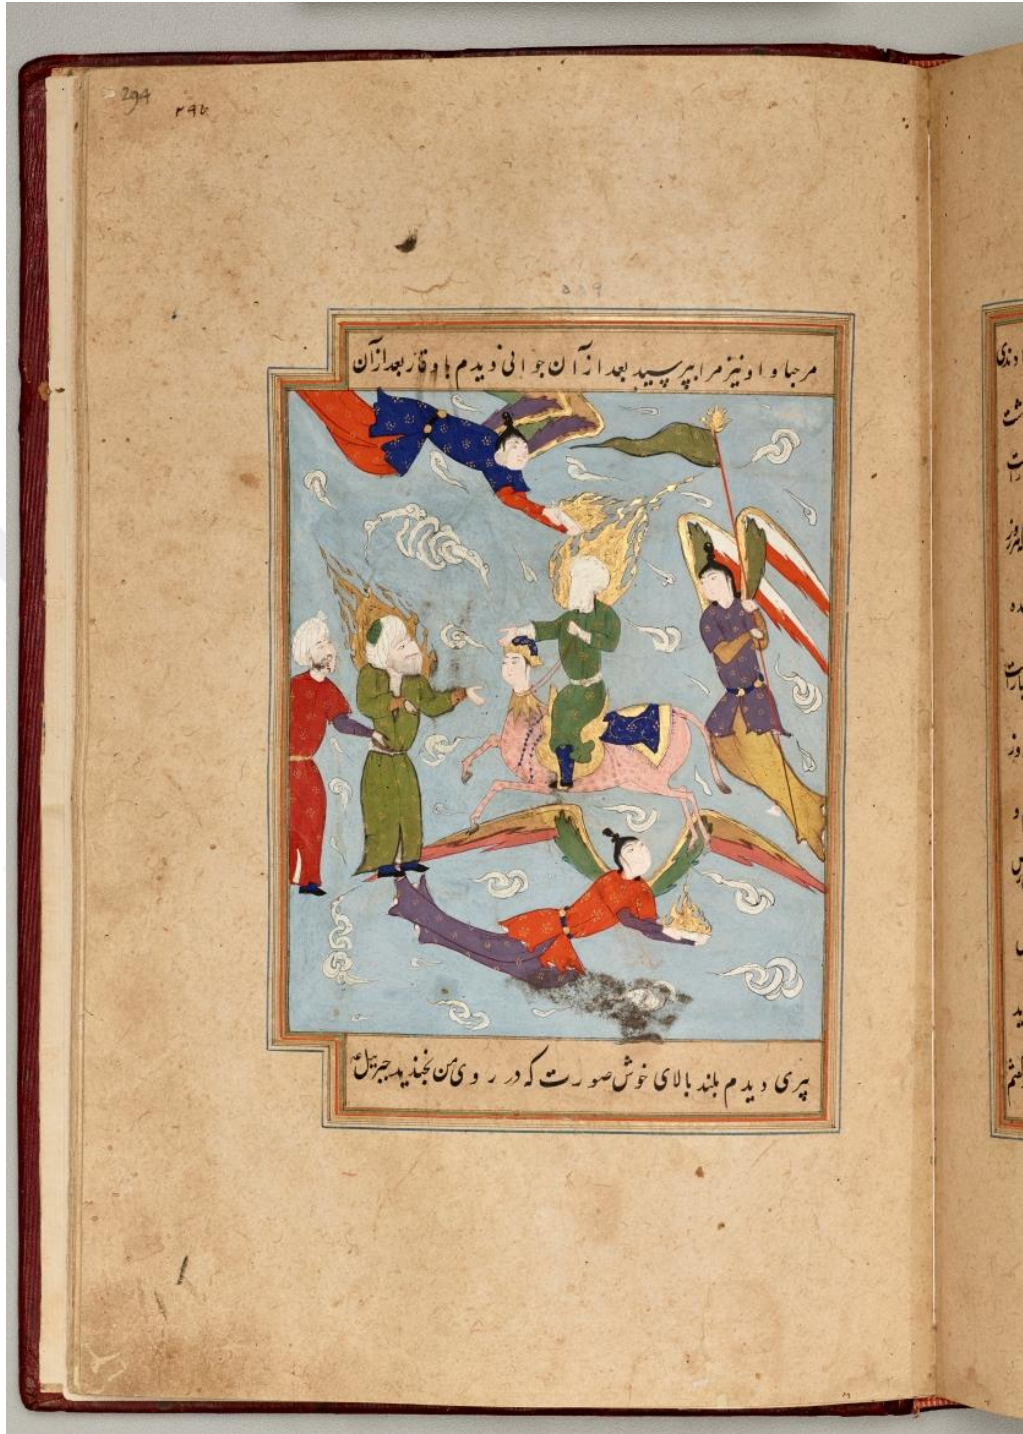 294
۲۹۵
مرحبا و او نیز مرا بپرسید بعد از آن جوانی دیدم با وقار بعد از آن
پیری دیدم بلند بالای خوش صورت که در روی من بخندید جبرئیل